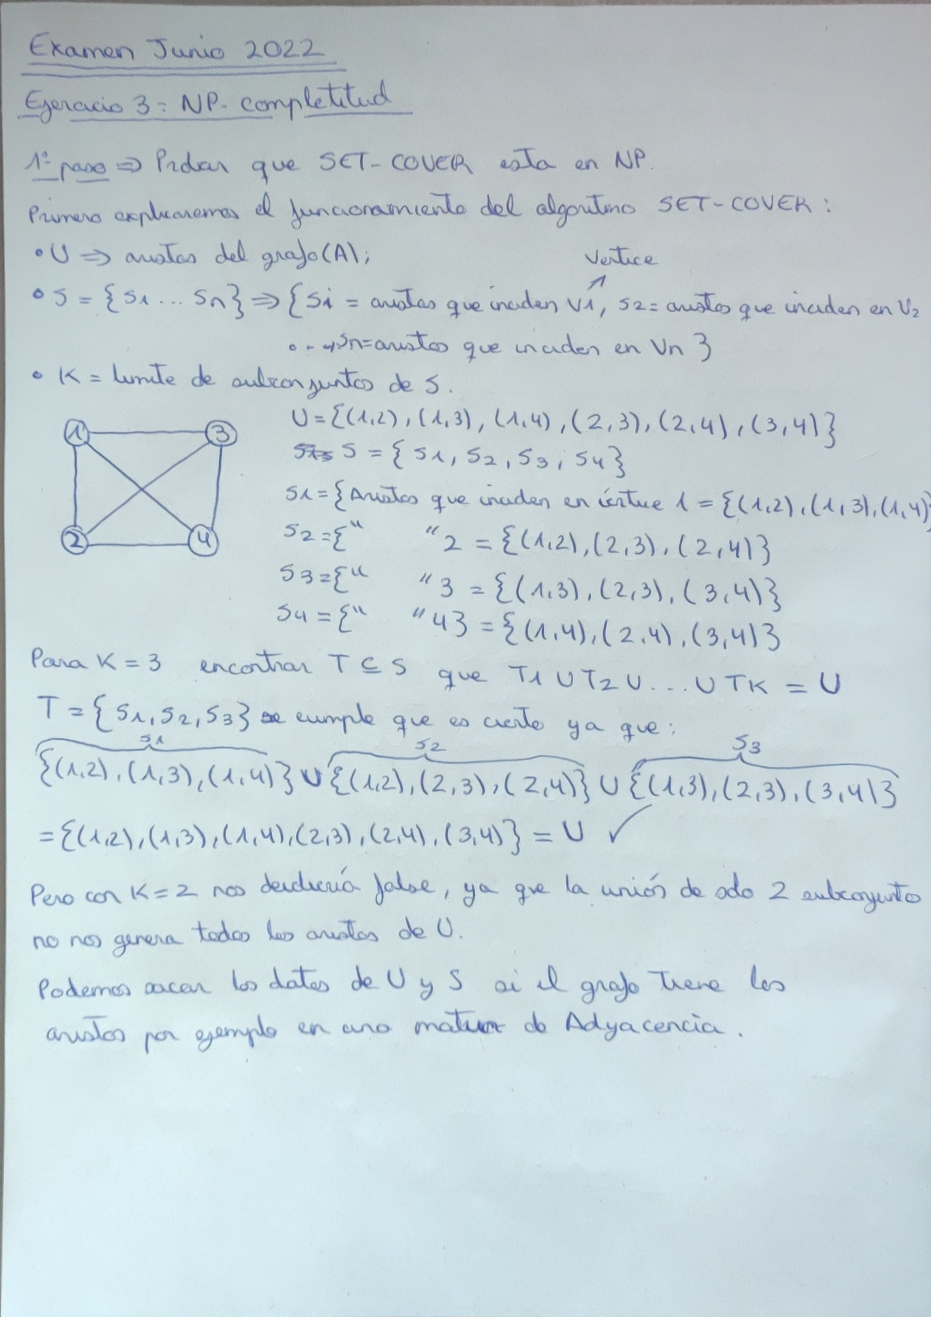 Examen Junio 2022
Ejercicio 3 = NP-completitud
1º paso ⇒ Probar que SET-COVER esta en NP.
Primero explicaremos el funcionamiento del algoritmo SET-COVER :
• U ⇒ aristas del grafo (A);
Vertice
• S = {S1 ... Sn} ⇒ {Si = aristas que inciden V1, S2 = aristas que inciden en V2
... Sn = aristas que inciden en Vn }
• K = limite de subconjuntos de S.
U = {(1,2), (1,3), (1,4), (2,3), (2,4), (3,4)}
S = {S1, S2, S3, S4}
S1 = {Aristas que inciden en 1 = {(1,2), (1,3), (1,4)}
S2 = {" " 2 = {(1,2), (2,3), (2,4)}
S3 = {" " 3 = {(1,3), (2,3), (3,4)}
S4 = {" " 4} = {(1,4), (2,4), (3,4)}
1 3
2 4
Para K = 3 encontrar T ⊆ S que T1 ∪ T2 ∪ ... ∪ TK = U
T = {S1, S2, S3} se cumple que es cierto ya que:
S1 S2 S3
{(1,2), (1,3), (1,4)} ∪ {(1,2), (2,3), (2,4)} ∪ {(1,3), (2,3), (3,4)}
= {(1,2), (1,3), (1,4), (2,3), (2,4), (3,4)} = U ✓
Pero con K = 2 nos false, ya que la unión de 2 subconjunto
no nos genera todas las aristas de U.
Podemos sacar los datos de U y S si el grafo tiene las
aristas por ejemplo en una matriz de Adyacencia.